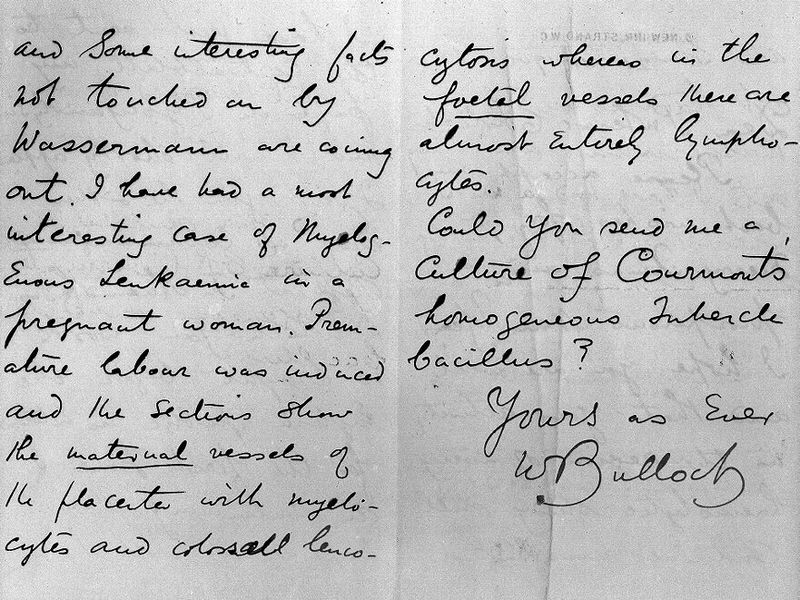 and some interesting facts
not touched on by
Wassermann are coming
out. I have had a most
interesting case of Myelog-
enous Leukaemia in a
pregnant woman. Prem-
ature labour was induced
and the sections show
the maternal vessels of
the placenta with myelo-
cytes and colossall leuco-
2 NEW INN, STRAND W.C
cytosis whereas in the
foetal vessels there are
almost entirely lympho-
cytes.
Could you send me a
culture of Courmonts
homogeneous Tubercle
bacillus?
Yours as Ever
W. Bulloch